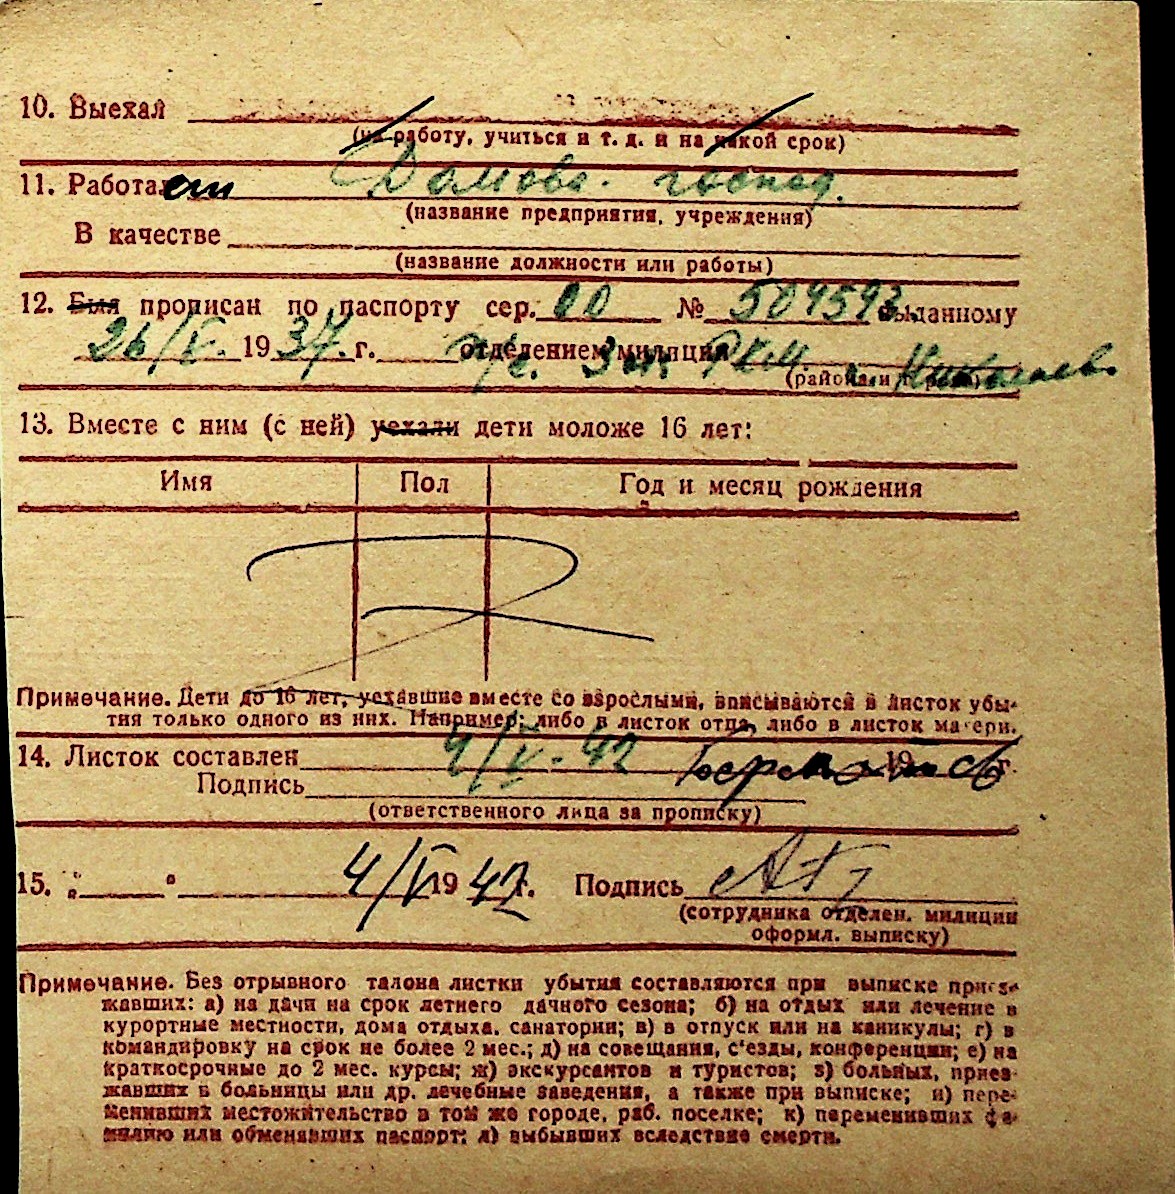 10. Выехал
(на работу, учиться и т. д. и на какой срок)
11. Работает Домова. господ.
(название предприятия, учреждения)
В качестве
(название должности или работы)
12. Был прописан по паспорту сер. 00 № 504593 выданному
26/V. 1937. г. отделением милиции РКМ. г. Николаев
(района и города)
13. Вместе с ним (с ней) уехали дети моложе 16 лет:
Имя Пол Год и месяц рождения
Примечание. Дети до 16 лет, уехавшие вместе со взрослыми, вписываются в листок убы-
тия только одного из них. Например: либо в листок отца, либо в листок матери.
14. Листок составлен 4/V. 42 19 г.
Подпись
(ответственного лица за прописку)
15. „ “ 4/V 1942 г. Подпись
(сотрудника отделен. милиции
оформл. выписку)
Примечание. Без отрывного талона листки убытия составляются при выписке приез-
жавших: а) на дачи на срок летнего дачного сезона; б) на отдых или лечение в
курортные местности, дома отдыха, санатории; в) в отпуск или на каникулы; г) в
командировку на срок не более 2 мес.; д) на совещания, с'езды, конференции; е) на
краткосрочные до 2 мес. курсы; ж) экскурсантов и туристов; з) больных, приез-
жавших в больницы или др. лечебные заведения, а также при выписке; и) пере-
менивших местожительство в том же городе, раб. поселке; к) переменивших фа-
милию или обменявших паспорт; л) выбывших вследствие смерти.